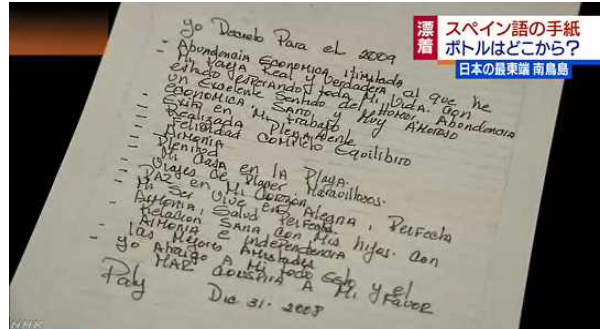 漂着
スペイン語の手紙
ボトルはどこから?
日本の最東端 南鳥島
Yo Decreto Para el 2009
- Abondancia Economica ilimitada
Mi Pareja Real y Verdadera, al que he
estado esperando toda Mi Vida. Con
un Exelente Sentido del Homor, Abondancia
Economica, Sano y Muy Amoroso
- Exito en Mi Trabajo
- Realizada Plenamente
- Felicidad Completo Equilibiro
- Armonia
- Plenitud
- Mi Casa en la Playa.
- Viajes de Placer Maravillosos.
- Paz en Mi Corazon
Mi Ser Vive en Alegria, Perfecta
Armonia, Salud Perfecta.
- Relacion Sana con Mis hijos. Con
Armonia e independencia
- las Mejores Amistades
- Yo Atraigo A Mi todo Esto y el
MAR Conspira A Mi Favor
Paty
Dic. 31. 2008
NHK